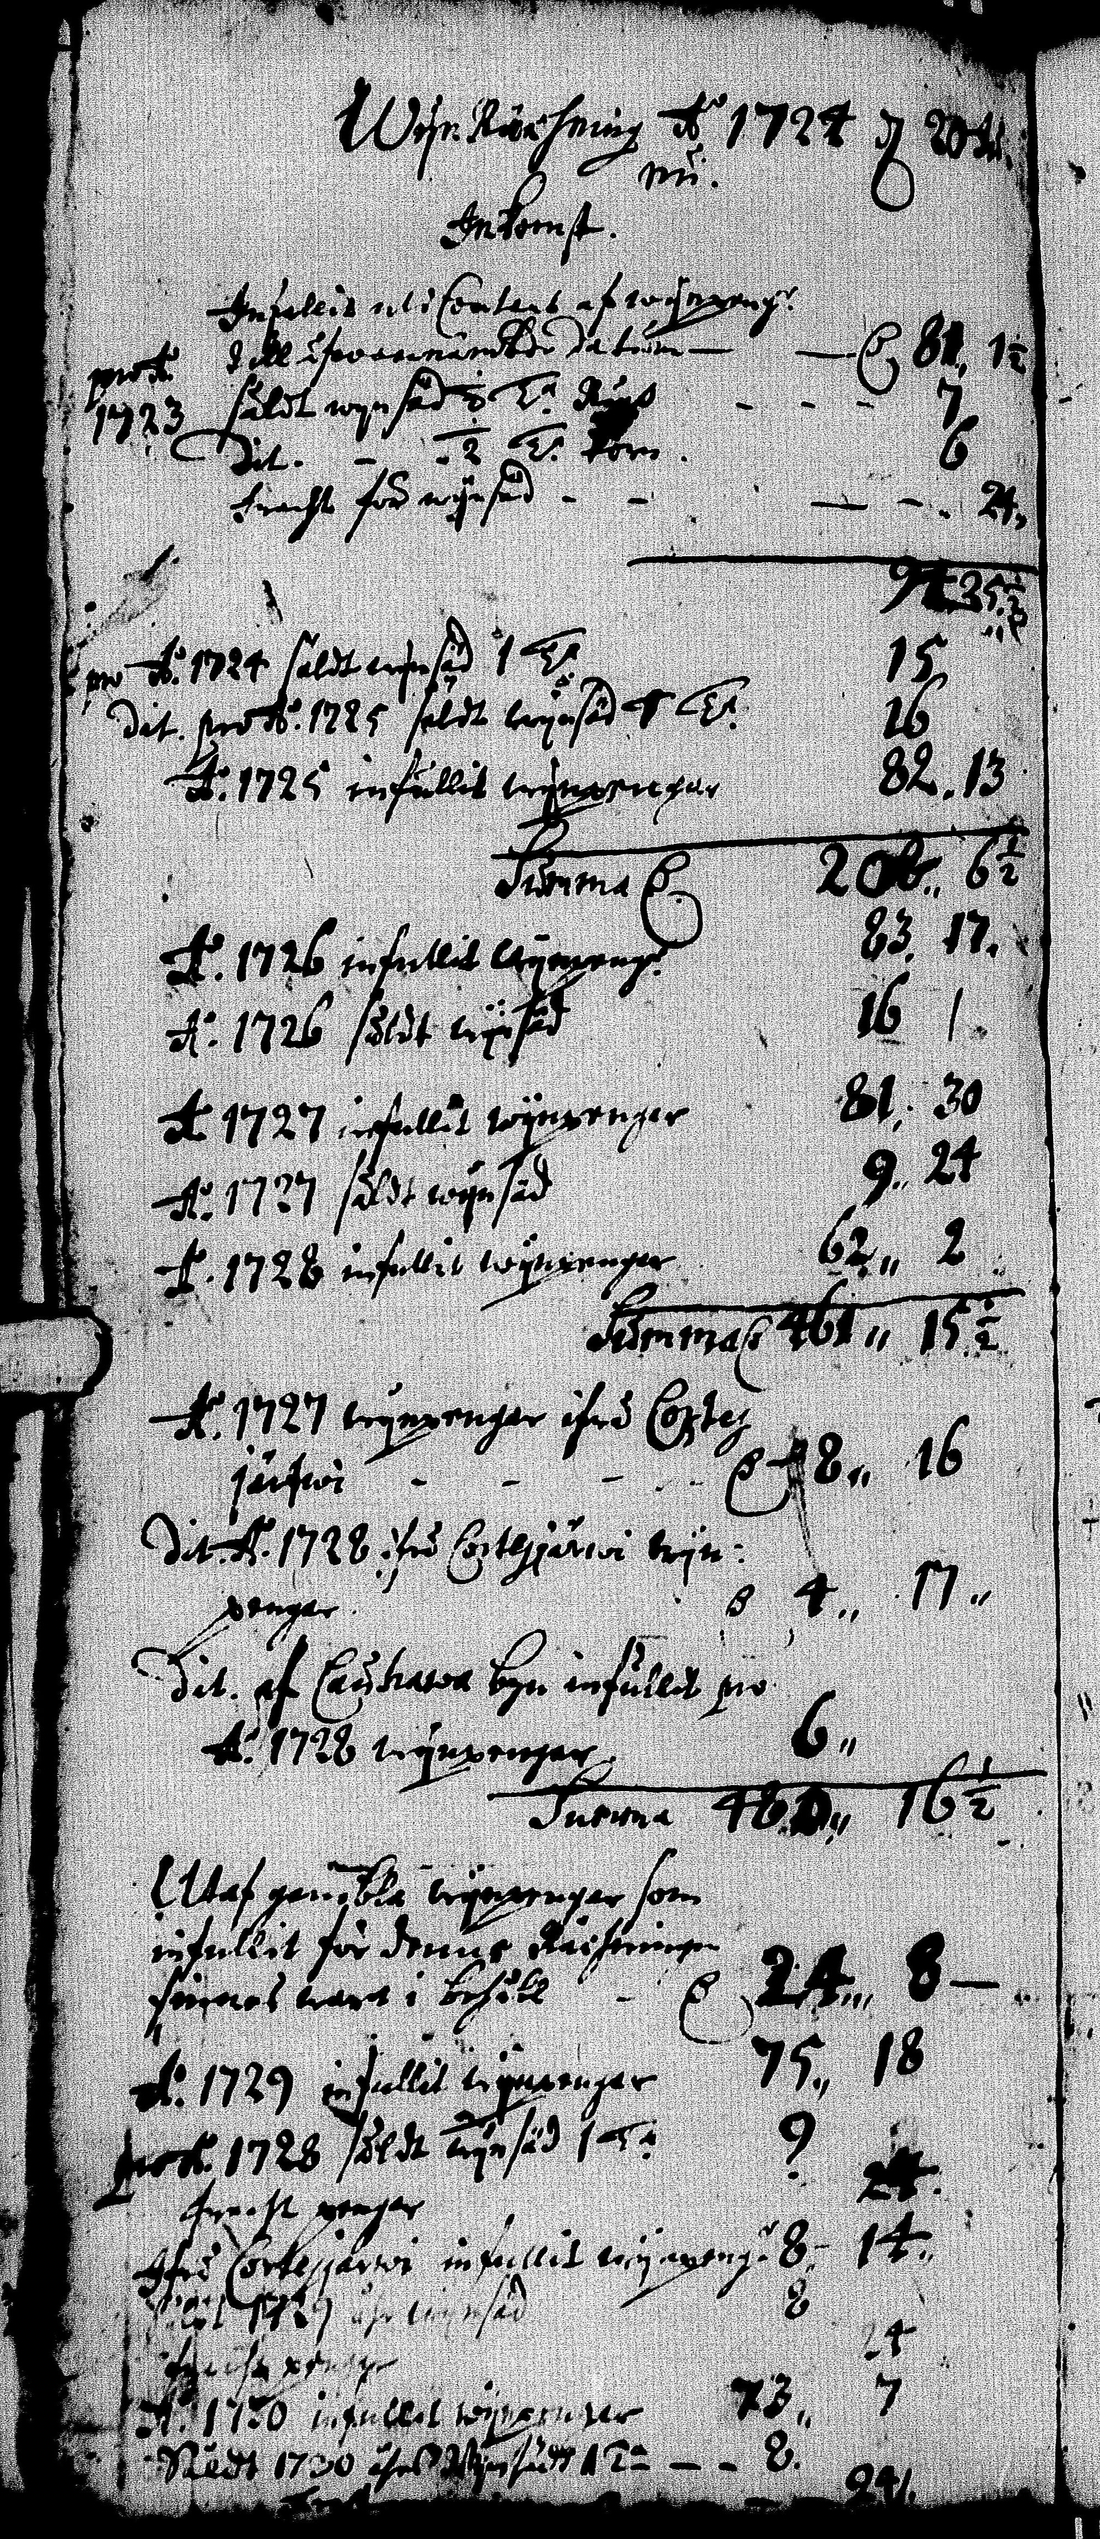 Wijn Räkning Aō 1724 d 20
Inkomst.
Infallit uti Contant af wijnpeng:r
till ofwannämbde datum — — 81,, 1½
pro Aō
1723 såldt wynsäd ½ T:r Råg - - - 7
Dit. - . ½ T:r Korn . 6
fracht för wijnsäd - - — - . 24,,
94 25½
pro Aō. 1724 såldt wijnsäd 1 T:r 15
Dit. pro Aō. 1725 såldt wijnsäd 1 T:r 16
Aō. 1725 infallit wijnpengar 82,, 13
Summa 208,, 6½
Aō. 1726 infallit wijnpeng:r 83. 17.
Aō. 1726 såldt wijnsäd 16 1
Aō 1727 infallit wijnpengar 81. 30
Aō. 1727 såldt wijnsäd 9,, 24
Aō. 1728 infallit wijnpengar 62,, 2
Summa 461,, 15½
Aō. 1727 wijnpengar ifrå Cortes
järfwi - - - - 8,, 16
Dit. Aō. 1728 ifrå Cortesjärwi wijn:
pengar 4,, 17,,
Dit. af Cauhawa byn infallit pro
Aō. 1728 wijnpengar. 6,,
Summa 480,, 16½
Utaf gambla wijnpengar som
infallit för denna Räkningen
finnes wara i behåll - 24,, 8 —
Aō. 1729 infallit wijnpengar 75,, 18
pro Aō. 1728 såldt wijnsäd 1 T:r 9
fracht pengar 24.
Ifrå Cortesjärwi infallit wijnpeng:r 8- 14,,
1729 åhrs wijnsäd 8
fracht pengar 24
Aō. 1730 infallit wijnpengar 73,, 7
Såldt 1730 åhrs Wijnsädh 1 T:r — - - 8.
24,,